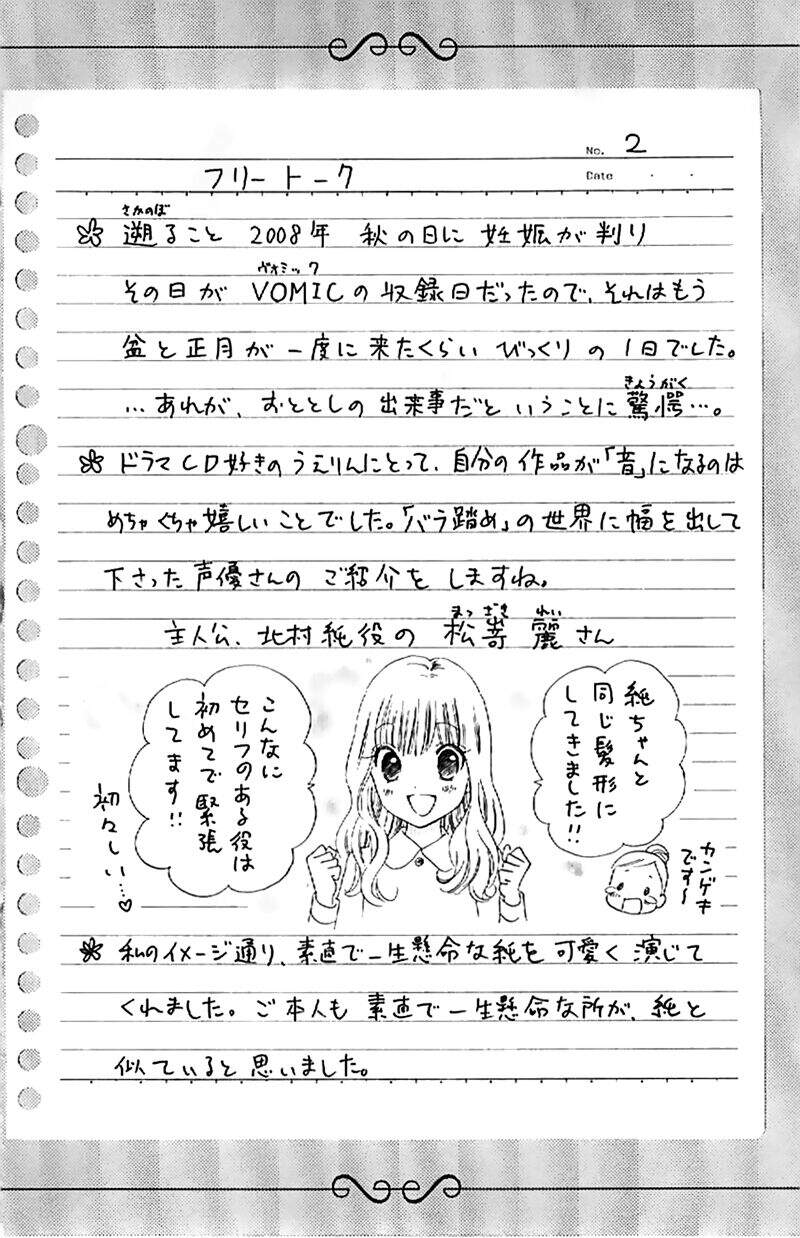 No. 2
Date
フリートーク
さかのぼ
遡ること 2008年 秋の日に 妊娠が判り
ヴォミック
その日が VOMICの収録日だったので、それはもう
盆と正月が一度に来たくらい びっくりの1日でした。
きょうがく
…あれが、おととしの出来事だと いうことに驚愕…。
ドラマCD好きのうえりんにとって、自分の作品が「音」になるのは
めちゃくちゃ嬉しいことでした。「バラ踏め」の世界に幅を出して
下さった声優さんの ご紹介を しますね。
まつざき れい
主人公、北村純役の 松嵜 麗さん
純ちゃんと
同じ髪形に
してきました!!
カンゲキ
です〜
こんなに
セリフのある役は
初めてで緊張
してます!!
初々しい…♡
私のイメージ通り、素直で一生懸命な純を可愛く演じて
くれました。ご本人も素直で一生懸命な所が、純と
似ていると思いました。